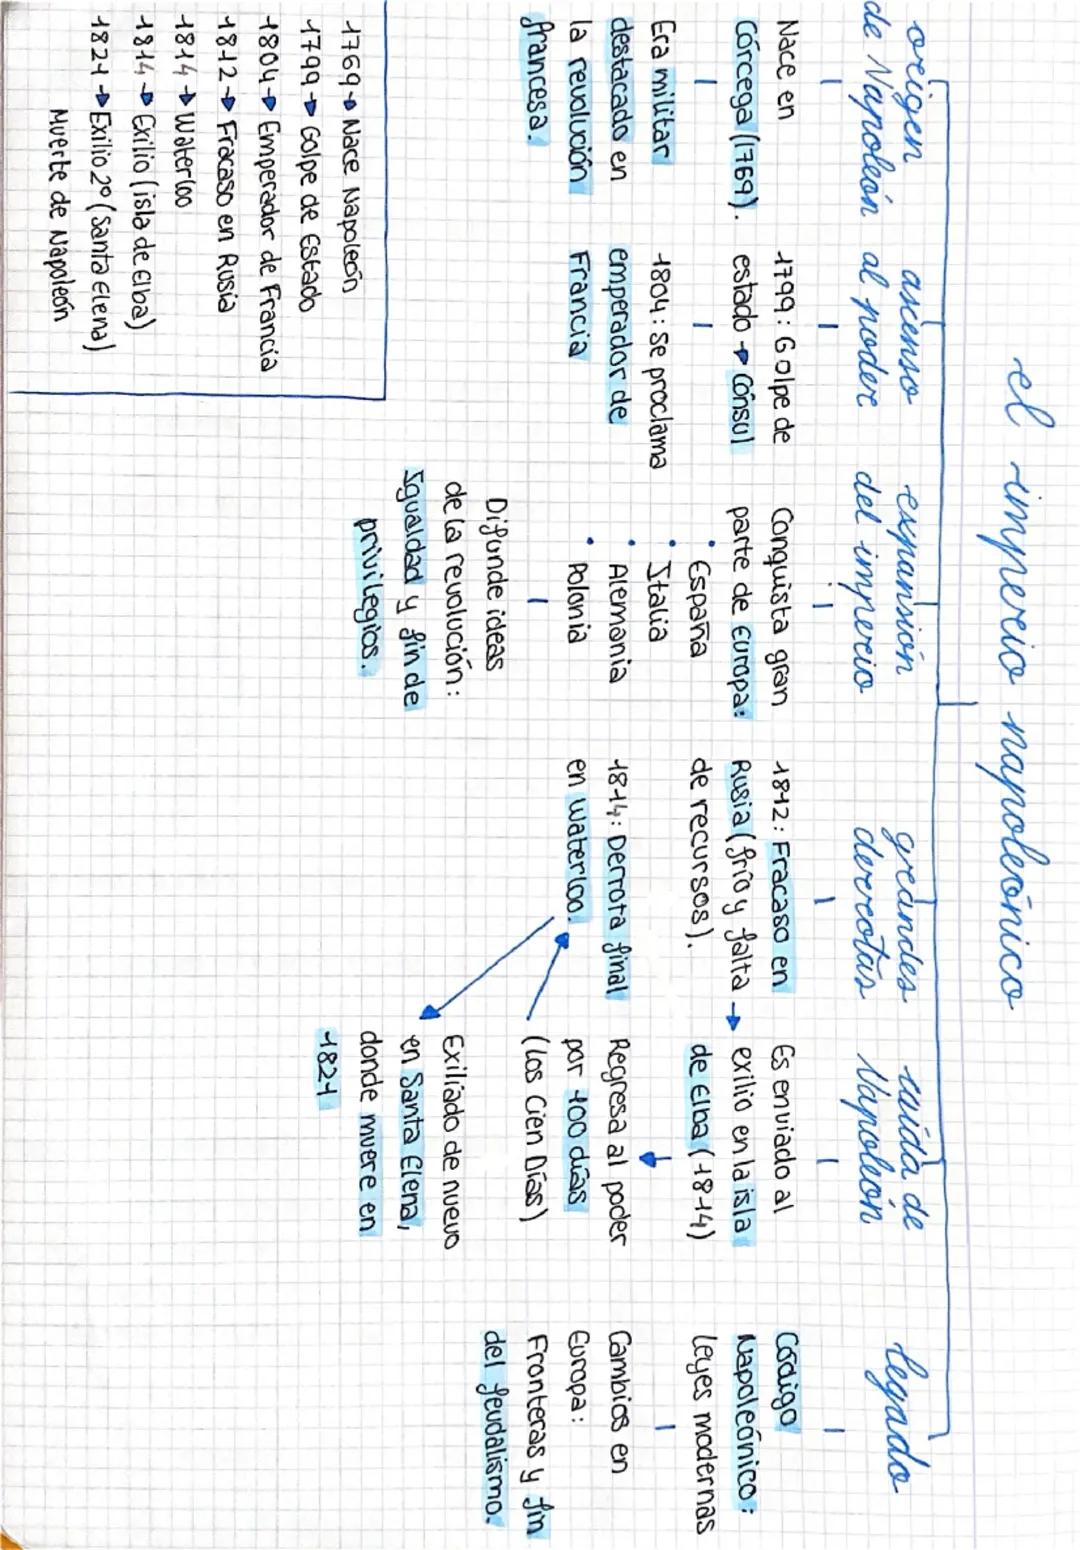 el imperio napoleónico
origen
de Napoleón
Nace en
Córcega (1769).
Era militar
destacado en
la revolución
francesa.
ascenso
al poder
1799: Golpe de
estado → Cónsul
1804: Se proclama
emperador de
Francia
expansión
del imperio
Conquista gran
parte de Europa:
• España
• Italia
• Alemania
• Polonia
Difunde ideas
de la revolución:
Igualdad y fin de
privilegios.
grandes
derrotas
1812: Fracaso en
Rusia (frío y falta →
de recursos).
1814: Derrota final
en Waterloo.
caída de
Napoleón
Es enviado al
exilio en la isla
de Elba (1814)
Regresa al poder
por 100 días
(los Cien Días)
Exiliado de nuevo
en Santa Elena,
donde muere en
1821
legado
Código
Napoleónico:
Leyes modernas
Cambios en
Europa:
Fronteras y fin
del feudalismo.
1769 → Nace Napoleón
1799 → Golpe de Estado
1804 → Emperador de Francia
1812 → Fracaso en Rusia
1814 → Waterloo
1814 → Exilio (isla de Elba)
1821 → Exilio 2º (Santa Elena)
Muerte de Napoleón